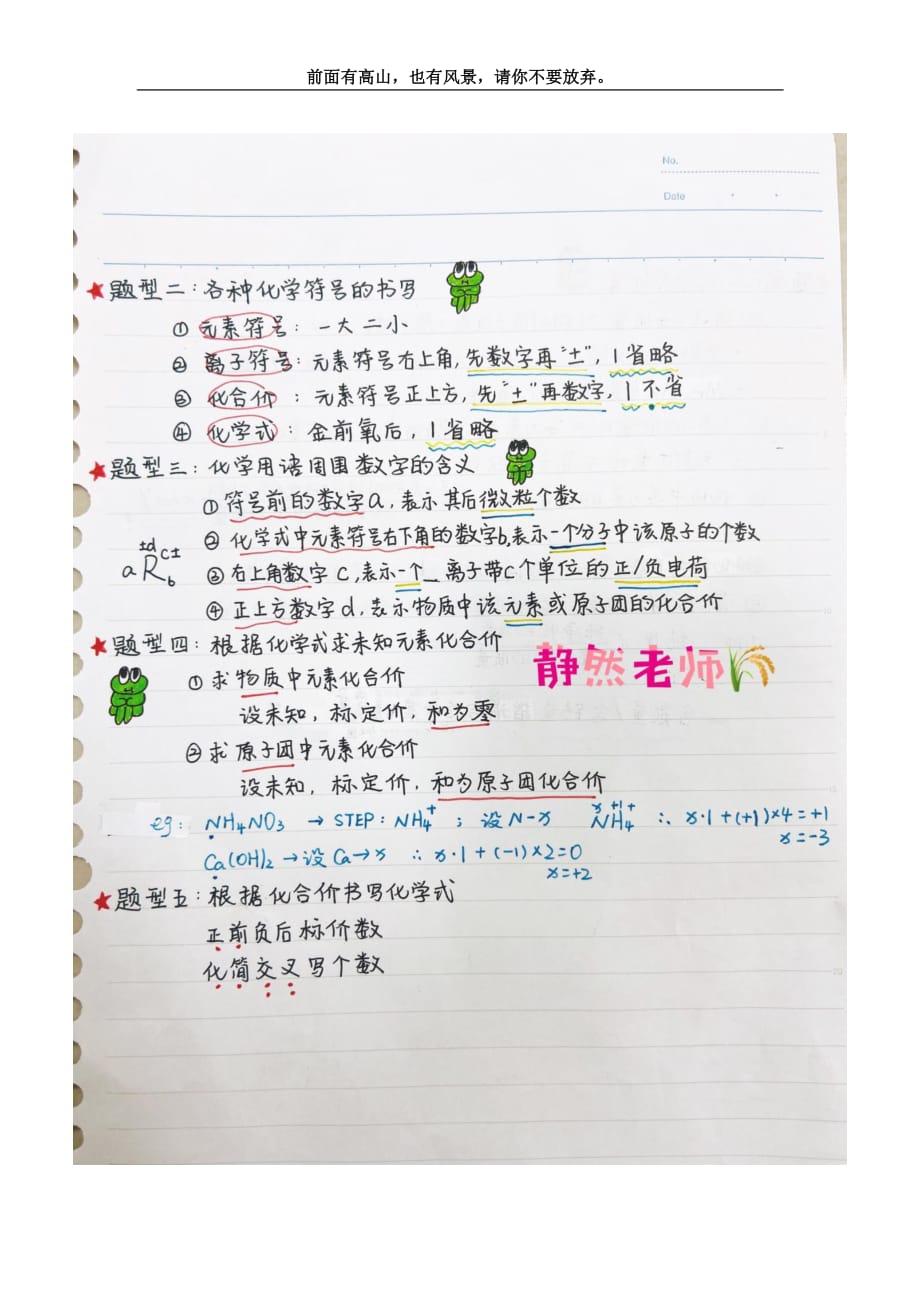 前面有高山，也有风景，请你不要放弃。
No.
Date
★题型二：各种化学符号的书写
① 元素符号：一大二小
② 离子符号：元素符号右上角，先数字再“±”，1省略
③ 化合价：元素符号正上方，先“±”再数字，1不省
④ 化学式：金前氧后，1省略
★题型三：化学用语周围数字的含义
①符号前的数字a，表示其后微粒个数
② 化学式中元素符号右下角的数字b，表示一个分子中该原子的个数
±d
aRb c±
③右上角数字c，表示一个_离子带c个单位的正/负电荷
④ 正上方数字d，表示物质中该元素或原子团的化合价
★题型四：根据化学式求未知元素化合价
静然老师
① 求物质中元素化合价
设未知，标定价，和为零
② 求原子团中元素化合价
设未知，标定价，和为原子团化合价
eg: NH₄NO₃ → STEP: NH₄⁺ ; 设N-x x +1 + NH₄ ∴ x·1+(+1)×4=+1
x=-3
Ca(OH)₂ → 设Ca→x ∴ x·1+(-1)×2=0
x=+2
★题型五：根据化合价书写化学式
正前负后标价数
化简交叉写个数